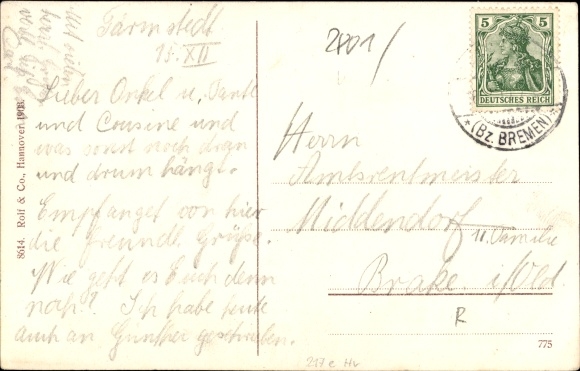 Tarmstedt
15. XII
Lieber Onkel u. Tante
und Cousine und
was sonst noch dran
und drum hängt.
Empfanget von hier
die freundl. Grüße.
Wie geht es Euch denn
noch? Ich habe heute
auch an Günther geschrieben.
8614. Rolf & Co., Hannover 1908.
2801/
5 5
DEUTSCHES REICH
*(Bz. BREMEN)*
Herrn
Amtsrentmeister
Middendorf
u. Familie
Brake i/Old.
R
775
217 e Hk